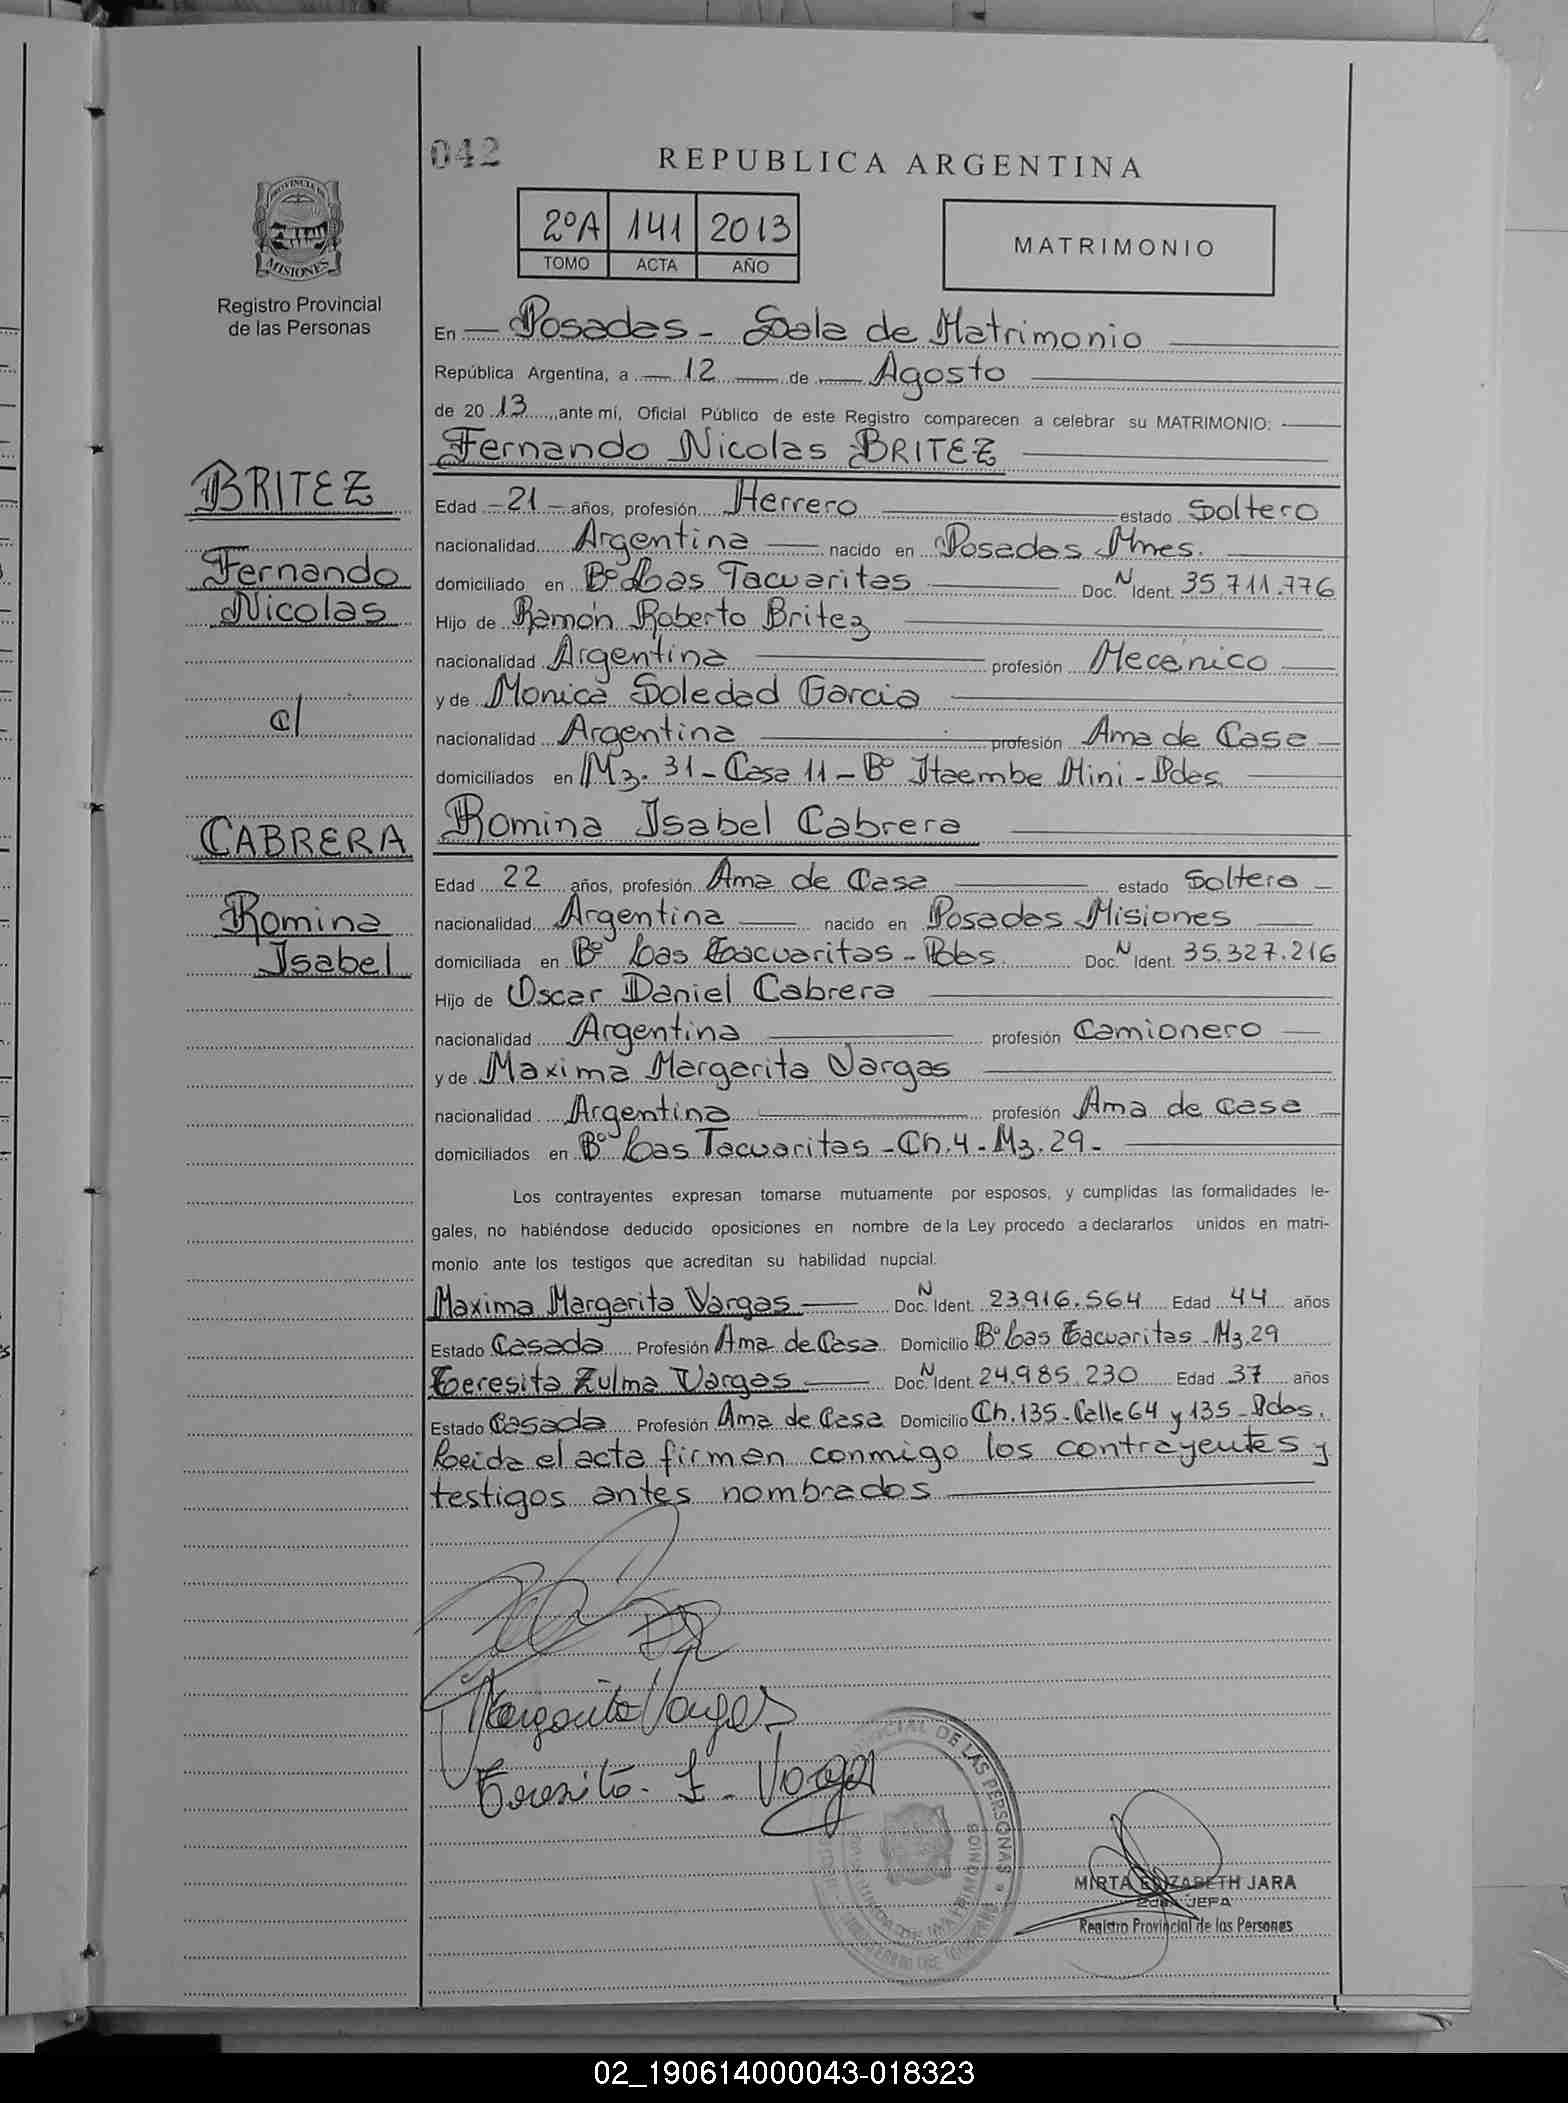 042
REPUBLICA ARGENTINA
2ºA 141 2013
TOMO ACTA AÑO
MATRIMONIO
PROVINCIA DE
MISIONES
Registro Provincial
de las Personas
En Posadas - Sala de Matrimonio
República Argentina, a 12 de Agosto
de 20 13, ante mí, Oficial Público de este Registro comparecen a celebrar su MATRIMONIO:
Fernando Nicolas BRITEZ
BRITEZ
Fernando
Nicolas
c/
CABRERA
Romina
Isabel
Edad - 21 - años, profesión Herrero estado Soltero
nacionalidad Argentina nacido en Posadas Mnes.
domiciliado en Bº Las Tacuaritas Doc. N Ident. 35.711.776
Hijo de Ramón Roberto Britez
nacionalidad Argentina profesión Mecánico
y de Monica Soledad Garcia
nacionalidad Argentina profesión Ama de Casa
domiciliados en Mz. 31 - Casa 11 - Bº Itaembe Mini - Pdas.
Romina Isabel Cabrera
Edad 22 años, profesión Ama de Casa estado Soltera
nacionalidad Argentina nacido en Posadas Misiones
domiciliada en Bº Las Tacuaritas - Pdas. Doc. N Ident. 35.327.216
Hijo de Oscar Daniel Cabrera
nacionalidad Argentina profesión Camionero
y de Maxima Margarita Vargas
nacionalidad Argentina profesión Ama de Casa
domiciliados en Bº Las Tacuaritas - Ch. 4 - Mz. 29 -
Los contrayentes expresan tomarse mutuamente por esposos, y cumplidas las formalidades le-
gales, no habiéndose deducido oposiciones en nombre de la Ley procedo a declararlos unidos en matri-
monio ante los testigos que acreditan su habilidad nupcial.
Maxima Margarita Vargas Doc. N Ident. 23.916.564 Edad 44 años
Estado Casada Profesión Ama de Casa Domicilio Bº Las Tacuaritas - Mz. 29
Teresita Zulma Vargas Doc. N Ident. 24.985.230 Edad 37 años
Estado Casada Profesión Ama de Casa Domicilio Ch. 135 - Calle 64 y 135 - Pdas.
Leida el acta firman conmigo los contrayentes y
testigos antes nombrados
Margarita Vargas
Teresita Z. Vargas
DE LAS PERSONAS
MATRIMONIOS
MIRTA ELIZABETH JARA
2da. JEFA
Registro Provincial de las Personas
02_190614000043-018323